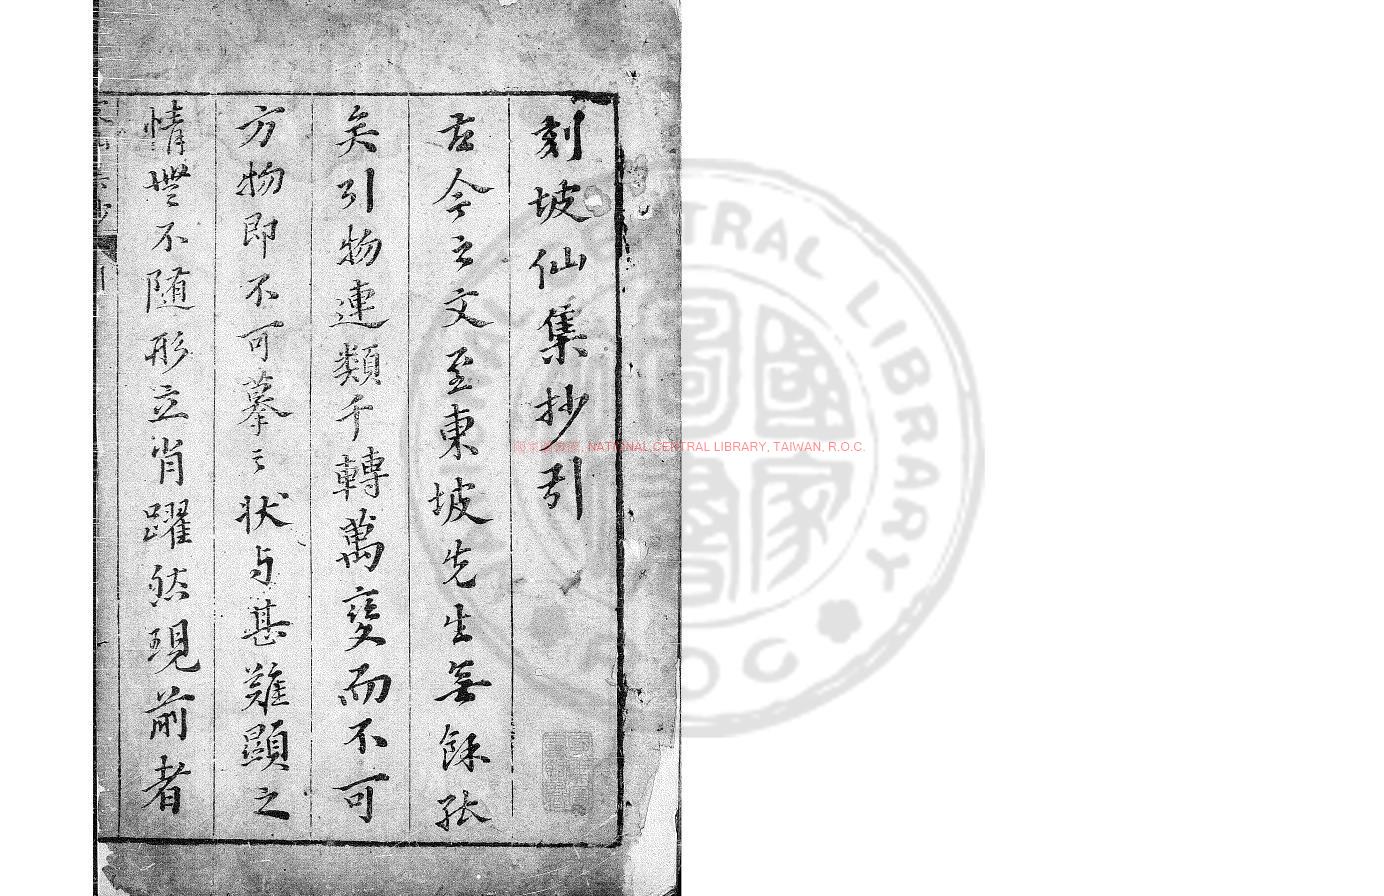 刻坡仙集抄引
古今之文至東坡先生無餘㢧
矣引物連類千轉萬變而不可
方物即不可摹之状与甚難顯之
情無不随形立肖躍然現前者
國家圖書館, NATIONAL CENTRAL LIBRARY, TAIWAN, R.O.C.
CENTRAL LIBRARY
ROC